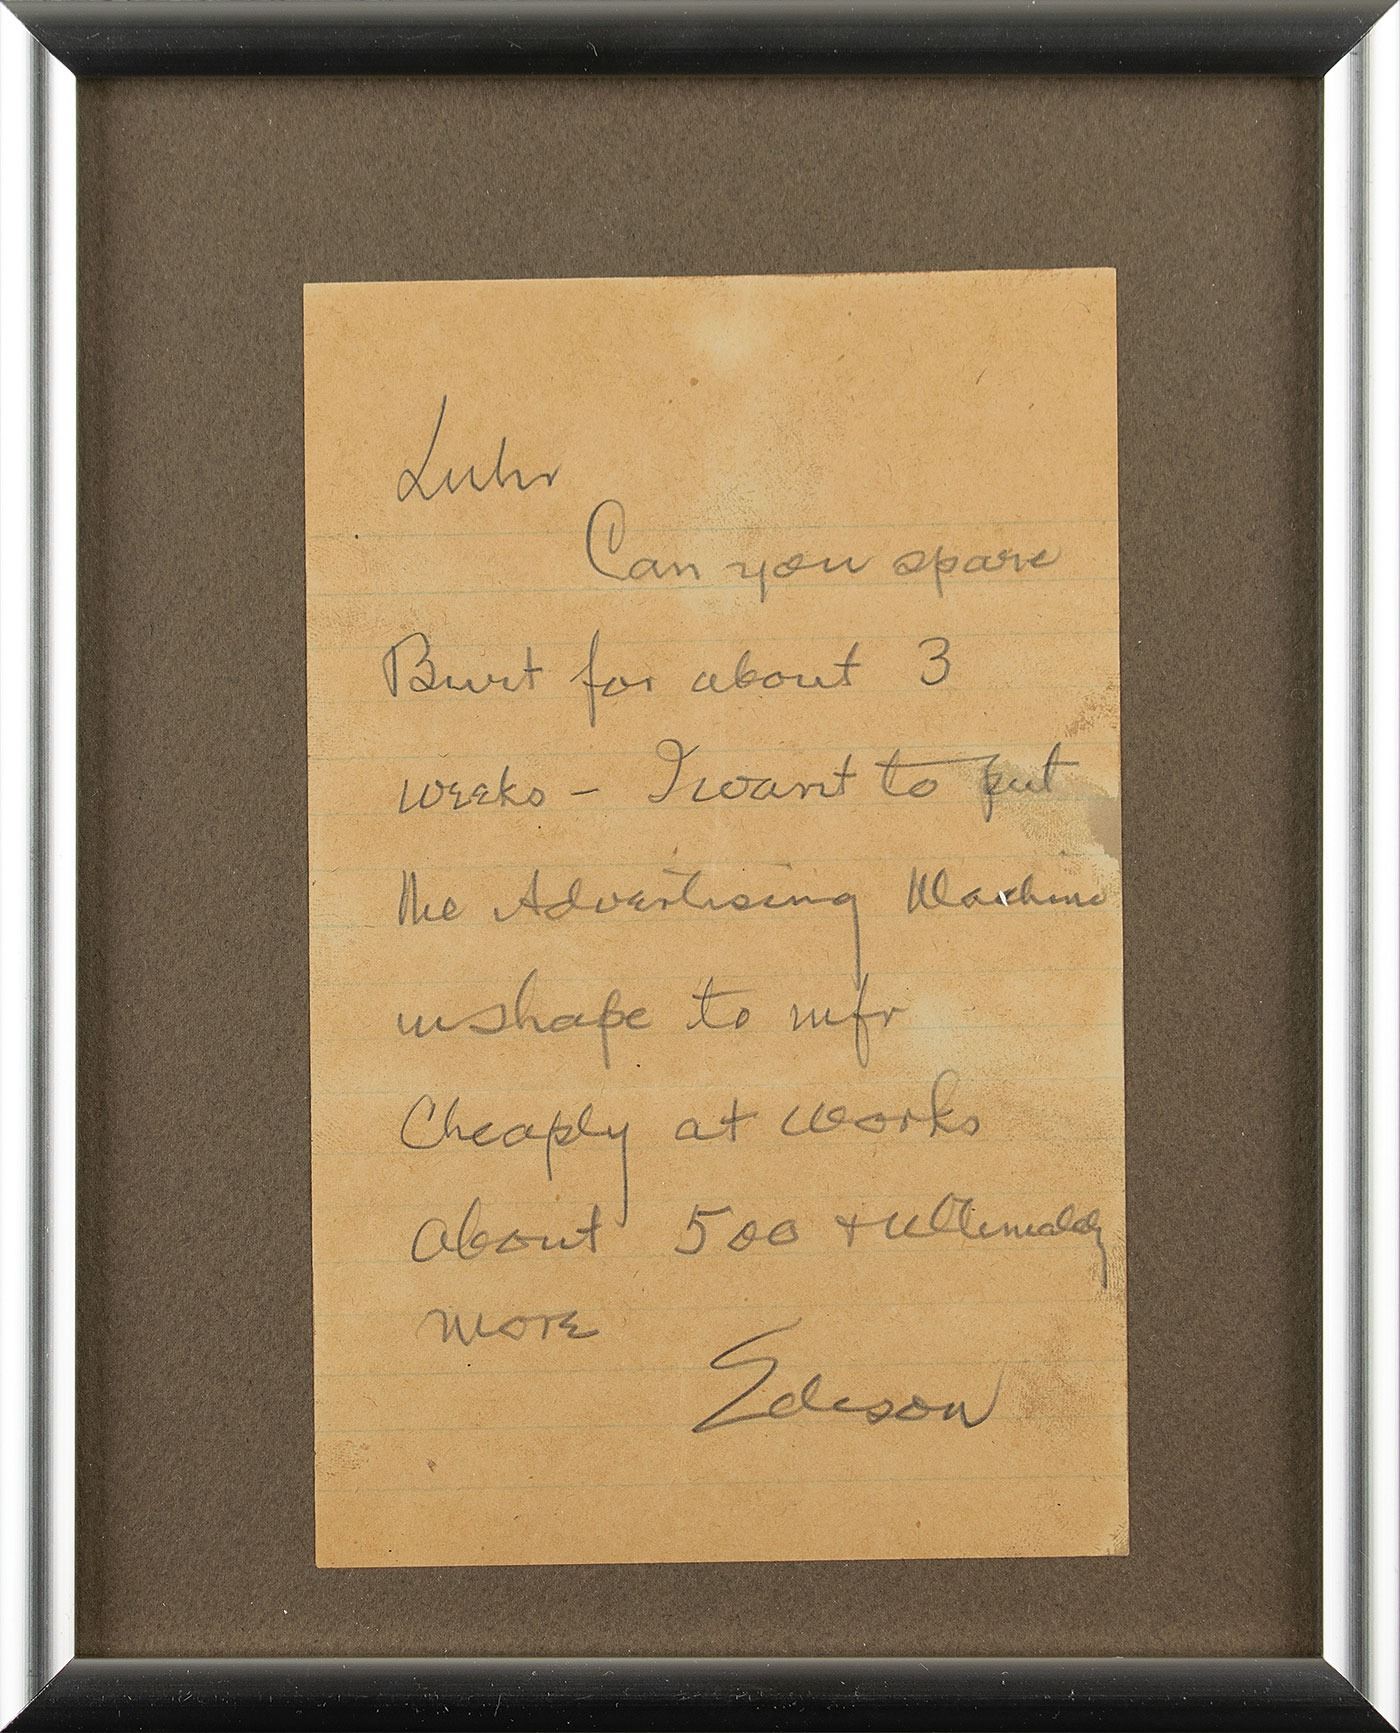 Luhr
Can you spare
Burt for about 3
weeks - I want to put
the Advertising Machine
in shape to mfr
Cheaply at works
about 500 + ultimately
more
Edison